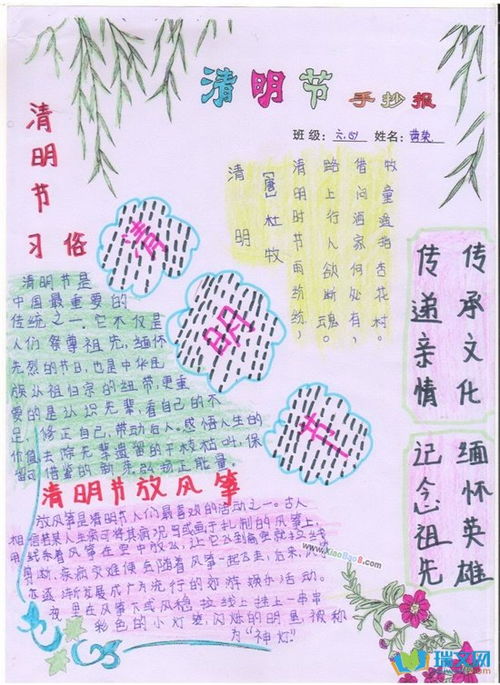 清明节 手抄报
班级：六（4） 姓名：
清明节
习俗
清明
【唐】杜牧
清明时节雨纷纷，
路上行人欲断魂。
借问酒家何处有，
牧童遥指杏花村。
清
明
节
传承文化
传递亲情
缅怀英雄
记念祖先
清明节是
中国最重要的
传统之一它不仅是
人们祭尊祖先，缅怀
先烈的节日，也是中华民
族认祖归宗的纽带，更重
要的是认识先辈，看自己的不
足，修正自己，带动后人，感悟人生的
价值去除先辈遗留的干枝枯叶，保
留可借鉴的 弘扬正能量
清明节放风筝
放风筝是清明节人们最喜欢的活动之一。古人
相信若某人生病可将其病况写或画于扎制的风筝上，
用线系着风筝在空中放飞，让它飞到高空就拉线
剪断，疾病灾难便会随着风筝一起飞走，后来，
亦逐渐发展成广为流行的郊游娱乐活动。
夜里在风筝下或风稳拉线上挂上一串串
彩色的小灯笼，闪烁的明星，被称
为“神灯”
www.XiaoBao8.com
瑞文网